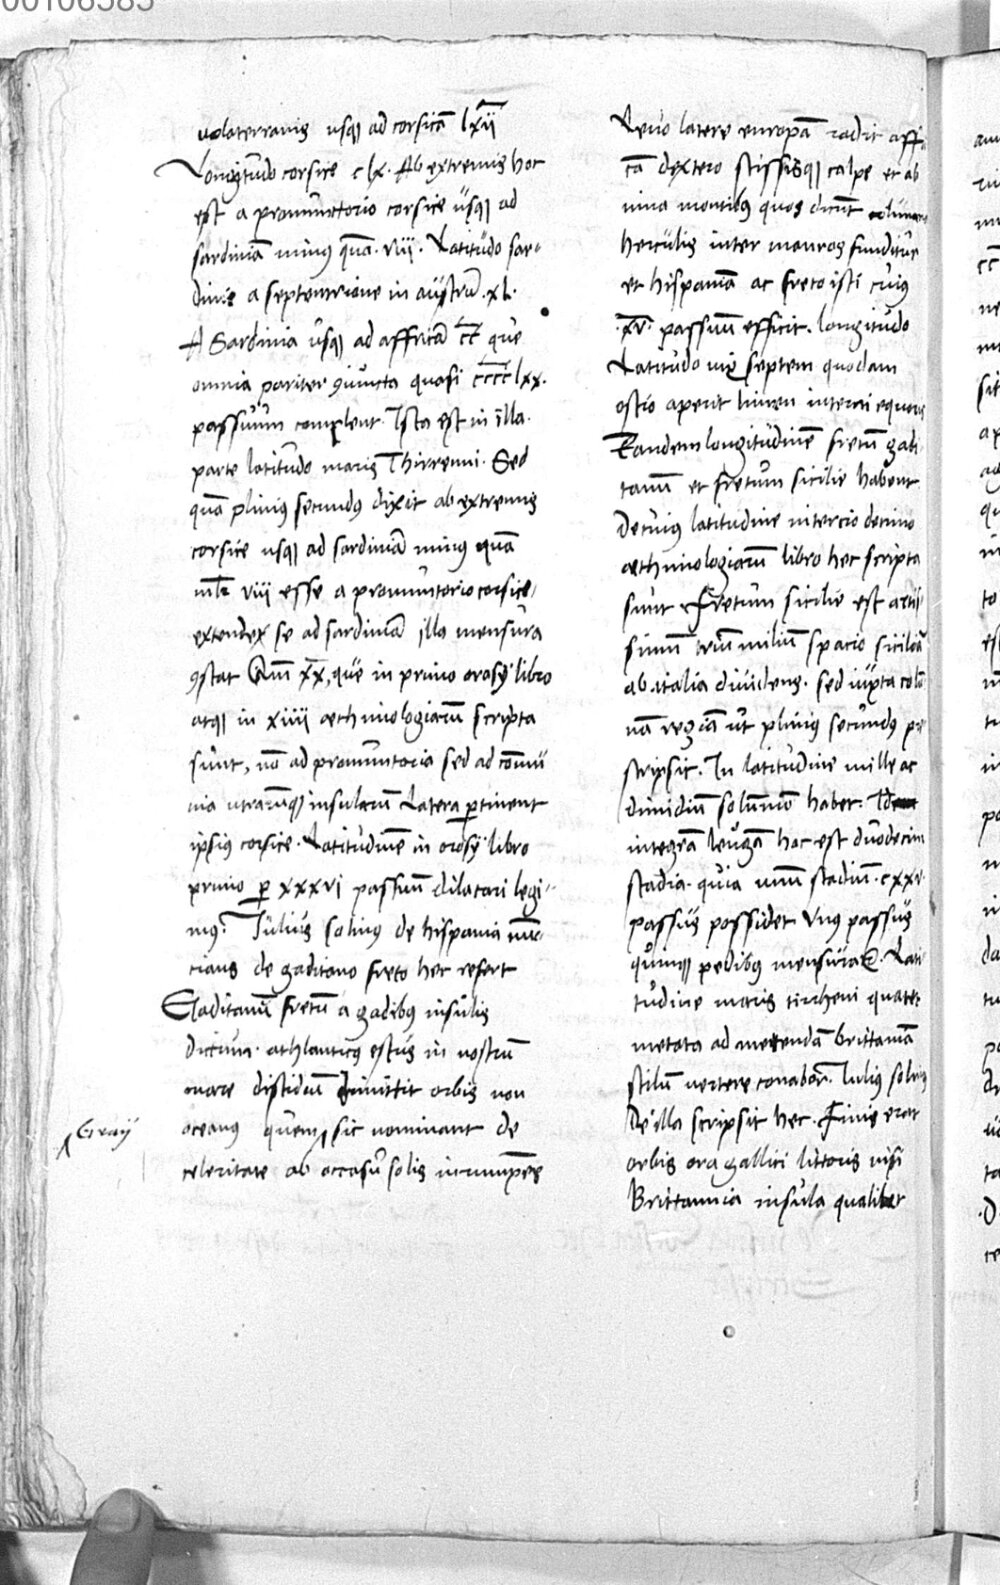 00106585
volaterranis usqꝫ ad corsicā lxii
Longitudo corsice clx. Ab extremis hoc
est a promuntorio corsice usqꝫ ad
sardiniā minus quā. viii. Latitudo sar-
dinie a septemtrione in austrū. xl.
A Sardinia usqꝫ ad affricā cc que
omnia pariter ꝯiuncta quasi cccclxx.
passuum complent. Ista est in illa.
parte latitudo maris Thirreni. Sed
quā plinius secundus dixit ab extremis
corsice usqꝫ ad sardiniā minus quā
viii esse a promuntorio corsice
se ad sardiniā illa mensura
ꝯstat xx, que in primo orosii libro
atqꝫ in xiiii æthimologiarū scripta
sunt, nō ad promuntoria sed ad
utrarūqꝫ insularū latera ꝑtinent
ipsius corsice. Latitudinē in orosii libro
primo ꝑ xxxvi passuum dilatari legi-
mus. Julius solinus de hispania nun-
cians de gaditano freto hec refert
Gaditanū fretū a gadibus insulis
dictum. athlanticus estus in nostrū
mare discidiū immittit orbis non
oceanus quem sic nominant de
celeritate ab occasu solis incumpens
Graij
Levo latere europā radit affri
cā dextero scissisqꝫ calpe et ab
inna montibus quos dicunt columnas
herculis inter mauros funditur
et hispaniā ac freto isti cuius
.xv. passuū efficit. longitudo
Latitudo vix septem quodam
ostio aperit limen interni equoris
Eandem longitudinē fretū gadi
tanū et fretum sicilie habent
De cuius latitudine in tercio decimo
æthimologiarū libro hec scripta
sunt Fretum sicilie est arti
simū triū miliū spacio siciliā
ab italia dividens. sed iuxta colū
nā regiā ut plinius secundus
scripsit. In latitudine mille ac
dimidiū solummodo habet.
integrā leugā hoc est duodecim
stadia. quia unū stadiū. cxxv.
passus possidet Unus passus
quinqꝫ pedibus mensuratur. Lati
tudine maris tirrheni
metata ad metendā brittaniā
stilū vertere conabor. Julius solinus
de illa scripsit hec. Finis erat
orbis ora gallici littoris nisi
Brittannia insula qualibet